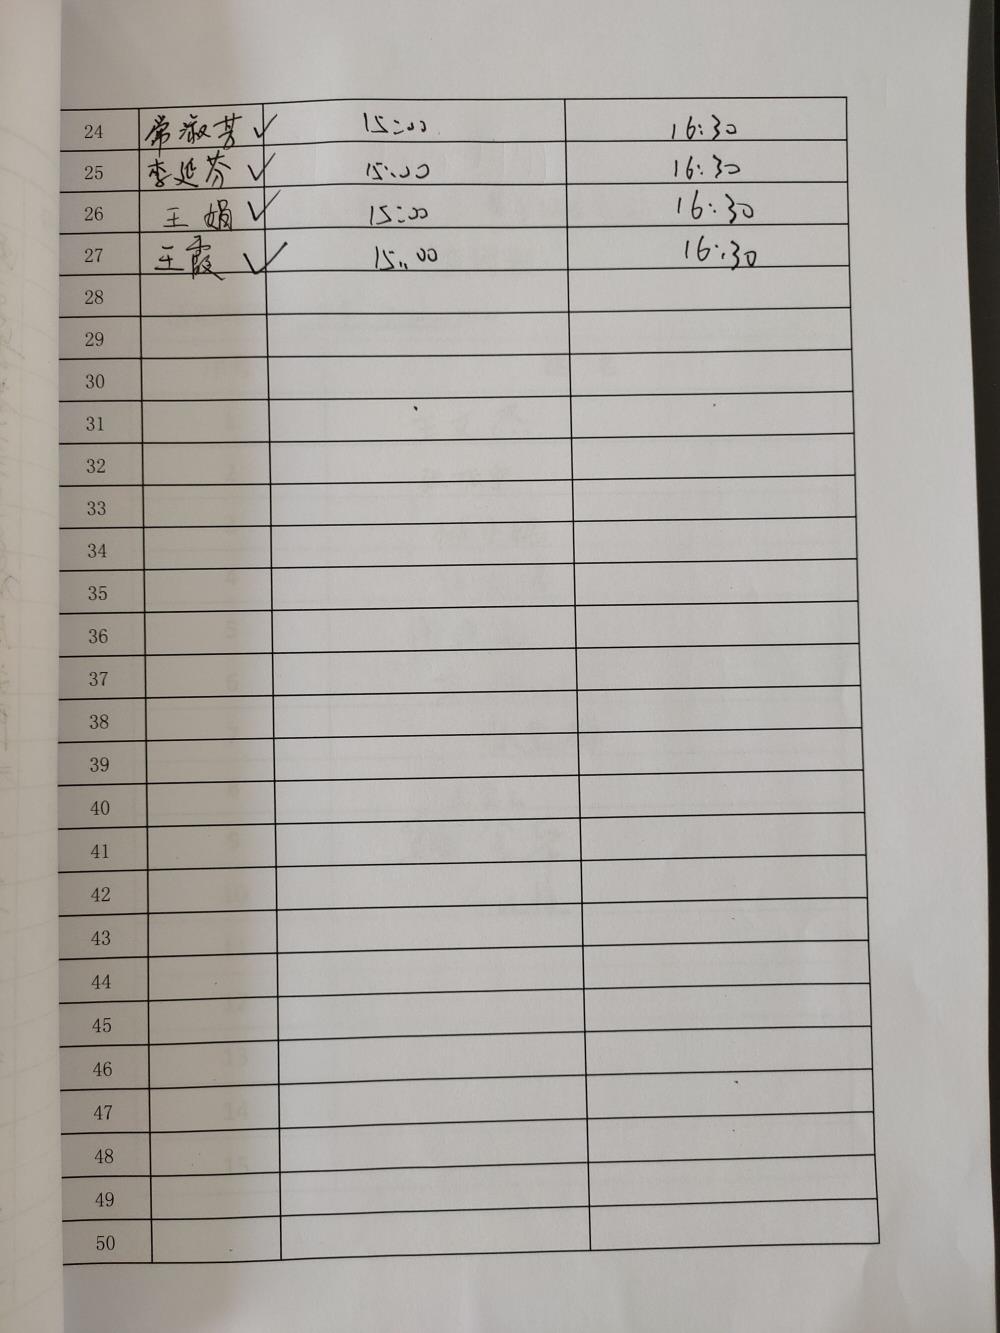 24 常淑芳 ✓ 15:00 16:30
25 李延芬 ✓ 15:00 16:30
26 王娟 ✓ 15:00 16:30
27 王霞 ✓ 15:00 16:30
28
29
30
31
32
33
34
35
36
37
38
39
40
41
42
43
44
45
46
47
48
49
50